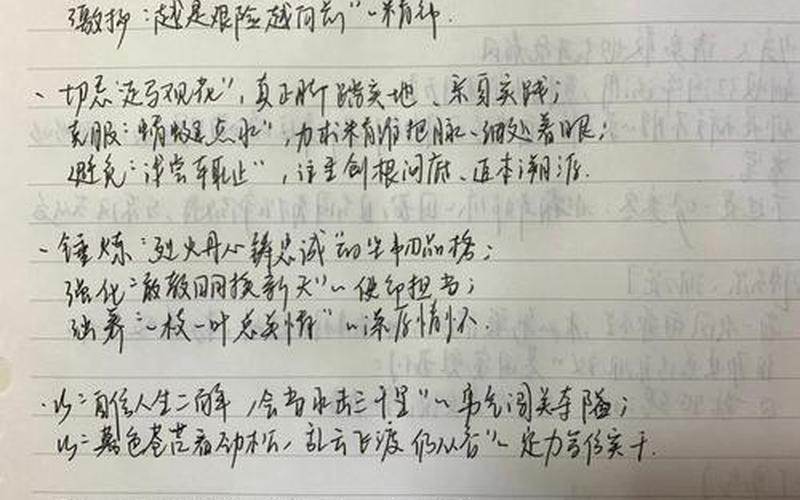 激扬“越是艰险越向前”的精神.
、切忌“走马观花”,真正脚踏实地、亲自实践;
克服“蜻蜓点水”,力求精准把脉、细处着眼;
避免“浅尝辄止”,注重刨根问底、追本溯源.
、锤炼“烈火丹心铸忠诚”的坚韧品格;
强化“敢教日月换新天”的使命担当;
涵养“一枝一叶总关情”的深厚情怀.
·以“自信人生二百年,会当水击三千里”的勇气闯关夺隘;
以“暮色苍茫看劲松,乱云飞渡仍从容”的定力笃信实干.